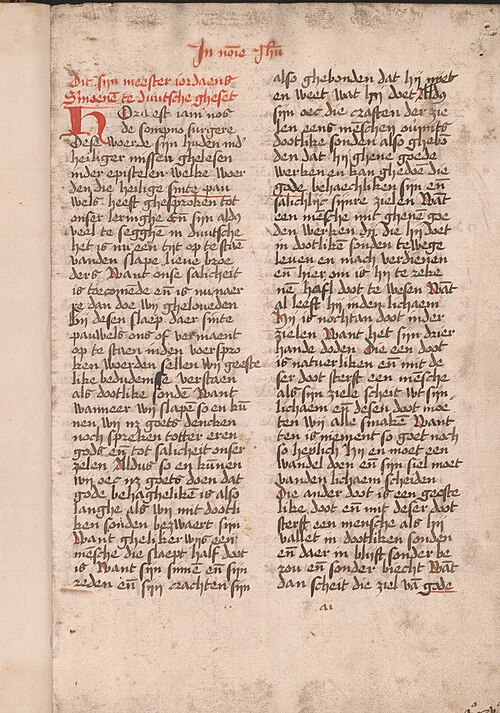 In noīe Ihū
Dit sijn meester iordaens
Simoenē te duutsche gheset
HOra est iam nos
de sompno surgere
Dese woerde sijn huden ind
heiliger missen ghelesen
inder epistelen welke woer
den die heilige sinte pau
wels heeft ghesproken tot
onser leringhe eñ sijn aldꝫ
veel te segghe in duutsche
het is nu een tijt op te staē
vanden slape lieue broe
ders Want onse salicheit
is toecomēde eñ is nu naer
re dan doe wij gheloueden
Bij desen slaep daer sinte
pauwels ons of vermaent
op te staen inden voerspro
ken woerden sellen wij geeste
like bedudenisse verstaen
als dootlike sonde Want
wanneer wij slapē so en kū
nen wij nz goets dencken
noch spreken totter eren
gods eñ tot salicheit onser
zelen Aldus so en kūnen
wij oec nz goets doen dat
gode behaghelikē is also
langhe als wij mit dootli
ken sonden bezwaert sijn
Want ghelikerwijs een
mēsche die slaept half doot
is Want sijn sinne eñ sijn
reden eñ sijn crachten sijn
also ghebonden dat hij niet
en weet wat hij doet Also
sijn oec die craften der zie
len eens menschen ouermits
dootlike sonden also ghebō
den dat hij ghene goede
werken en kan ghedoē die
gode behaechliken sijn eñ
salichlijc sijnre zielen Wāt
een mēsche mit ghene goe
den werken die hij doet
in dootlikē sonden tewege
leuen en mach verdienen
eñ hier om is hij te reke
nē half doot te wesen Wāt
al leeft hij inden lichaem
hij is nochtan doot inder
zielen Want het sijn drier
hande doden Die een doot
is natuerliken eñ mit de
ser doot sterft een mēsche
als sijn ziele scheit wt sijn
lichaem eñ desen doot moe
ten wij alle smakē Want
ten is niement so goet noch
so heylich hij en moet een
wandel doen eñ sijn siel moet
vanden lichaem scheiden
Die ander doot is een geeste
like doot eñ mit deser doot
sterft een mensche als hij
vallet in dootliken sonden
eñ daer in blijft sonder be
rou eñ sonder biecht Wāt
dan scheit die ziel vā gode